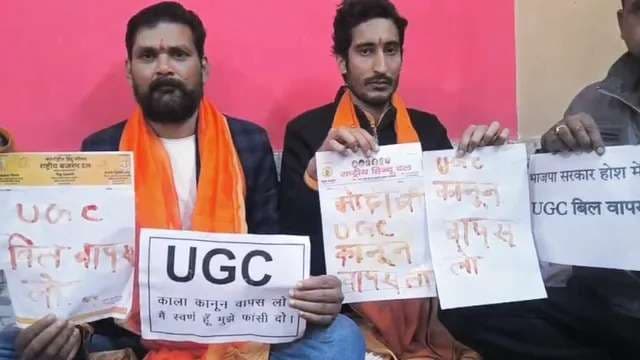 राष्ट्रीय बजरंग दल
UGC
बिल वापस
लो
UGC
काला कानून वापस लो
मैं स्वर्ण हूँ मुझे फांसी दो।
राष्ट्रीय हिन्दू दल
UGC
कानून
वापस लो
UGC
कानून
वापस
लो
भाजपा सरकार होश में
UGC बिल वापस